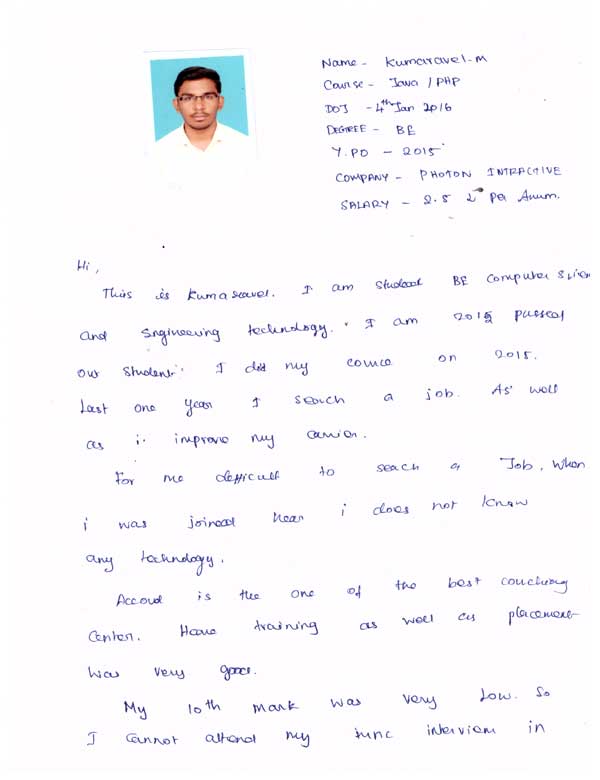 Name - Kumaravel-M
Course - Java / PHP
DOJ - 4th Jan 2016
DEGREE - BE
Y.PO - 2015
COMPANY - PHOTON INTRACTIVE
SALARY - 2.5 L Per Anum.
Hi,
This is Kumaravel. I am student BE Computer Scien
and Engineering technology. I am 2015 passed
out student. I did my course on 2015.
Last one year I search a job. As well
as i improve my carrier.
For me difficult to seach a Job. When
i was joined hear i does not know
any technology.
Accord is the one of the best couching
Center. Here training as well as placement
was very good.
My 10th mark was very Low. So
I Cannot attend my interview in